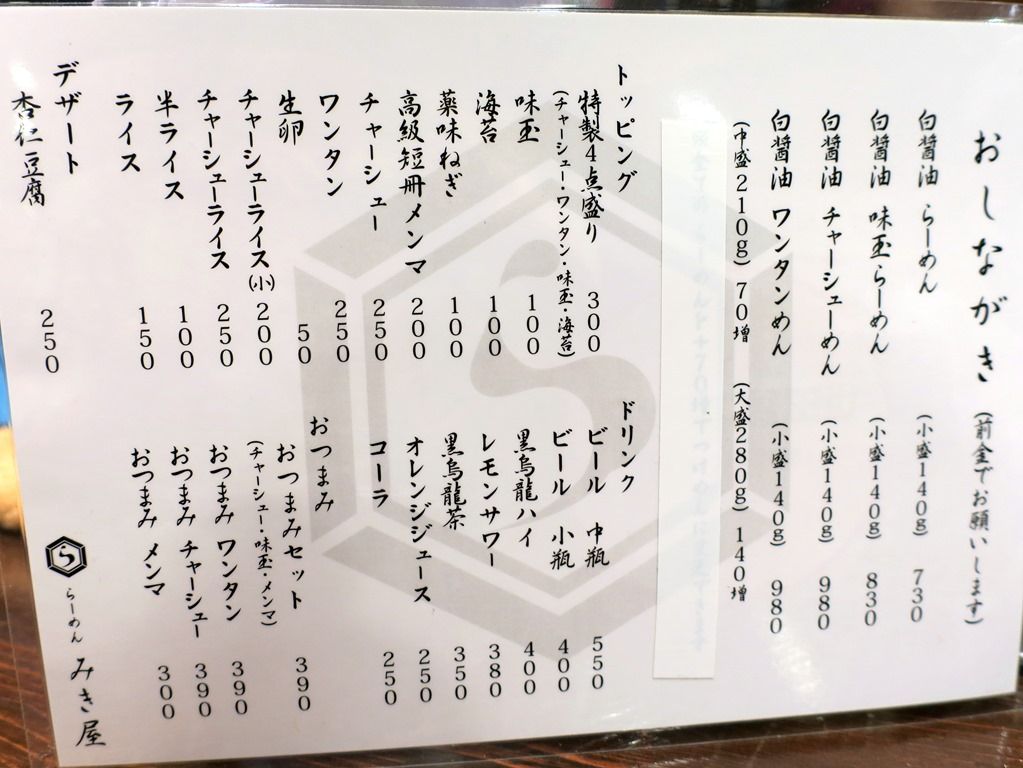 おしながき (前金でお願いします)
白醤油 らーめん (小盛140g) 730
白醤油 味玉らーめん (小盛140g) 830
白醤油 チャーシューめん (小盛140g) 980
白醤油 ワンタンめん (小盛140g) 980
(中盛210g) 70増 (大盛280g) 140増
トッピング
特製4点盛り 300
(チャーシュー・ワンタン・味玉・海苔)
味玉 100
海苔 100
薬味ねぎ 100
高級短冊メンマ 200
チャーシュー 250
ワンタン 250
生卵 50
チャーシューライス(小) 200
チャーシューライス 250
半ライス 100
ライス 150
デザート
杏仁豆腐 250
ドリンク
ビール 中瓶 550
ビール 小瓶 400
黒烏龍ハイ 400
レモンサワー 380
黒烏龍茶 350
オレンジジュース 250
コーラ 250
おつまみ
おつまみセット 390
(チャーシュー・味玉・メンマ)
おつまみ ワンタン 390
おつまみ チャーシュー 390
おつまみ メンマ 300
ら
らーめん みき屋